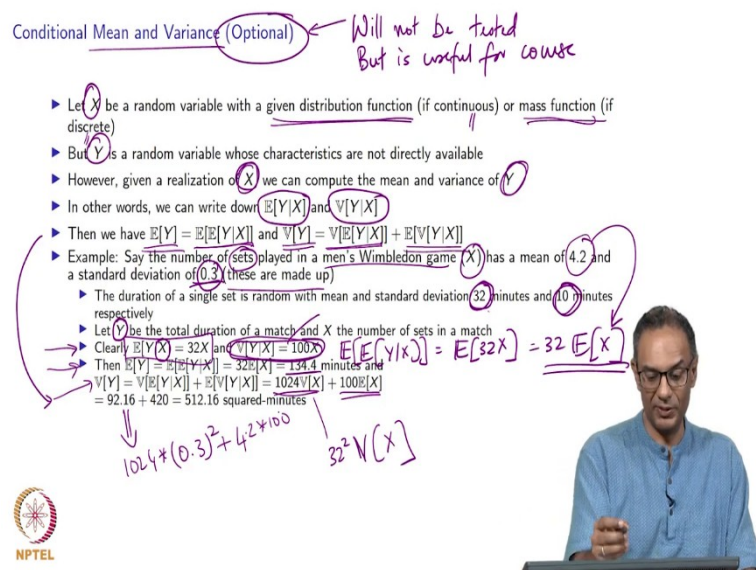 Conditional Mean and Variance (Optional)
Will not be tested
But is useful for course
▶ Let X be a random variable with a given distribution function (if continuous) or mass function (if
discrete)
▶ But Y is a random variable whose characteristics are not directly available
▶ However, given a realization of X we can compute the mean and variance of Y
▶ In other words, we can write down 𝔼[Y|X] and 𝕍[Y|X]
▶ Then we have 𝔼[Y] = 𝔼[𝔼[Y|X]] and 𝕍[Y] = 𝕍[𝔼[Y|X]] + 𝔼[𝕍[Y|X]]
▶ Example: Say the number of sets played in a men's Wimbledon game (X) has a mean of 4.2 and
a standard deviation of 0.3 (these are made up)
▶ The duration of a single set is random with mean and standard deviation 32 minutes and 10 minutes
respectively
▶ Let Y be the total duration of a match and X the number of sets in a match
▶ Clearly 𝔼[Y|X] = 32X and 𝕍[Y|X] = 100X
𝔼[𝔼[Y|X]] = 𝔼[32X] = 32 𝔼[X]
▶ Then 𝔼[Y] = 𝔼[𝔼[Y|X]] = 32𝔼[X] = 134.4 minutes and
𝕍[Y] = 𝕍[𝔼[Y|X]] + 𝔼[𝕍[Y|X]] = 1024𝕍[X] + 100𝔼[X]
= 92.16 + 420 = 512.16 squared-minutes
1024*(0.3)² + 4.2*100
32² 𝕍[X]
NPTEL